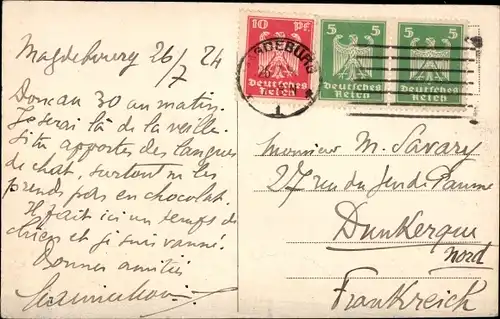 Magdebourg 26/7 24
Donc au 30 au matin.
Je serai là de la veille.
Si tu apportes des langues
de chat, surtout ne les
prends pas en chocolat.
Il fait ici un temps de
chien et je suis vanné.
Bonnes amitiés
10 Pf.
Deutsches
Reich
5 5
Deutsches
Reich
5 5
Deutsches
Reich
1
Monsieur M. Savary
27 rue du Jeu de Paume
Dunkerque
Nord
Frankreich